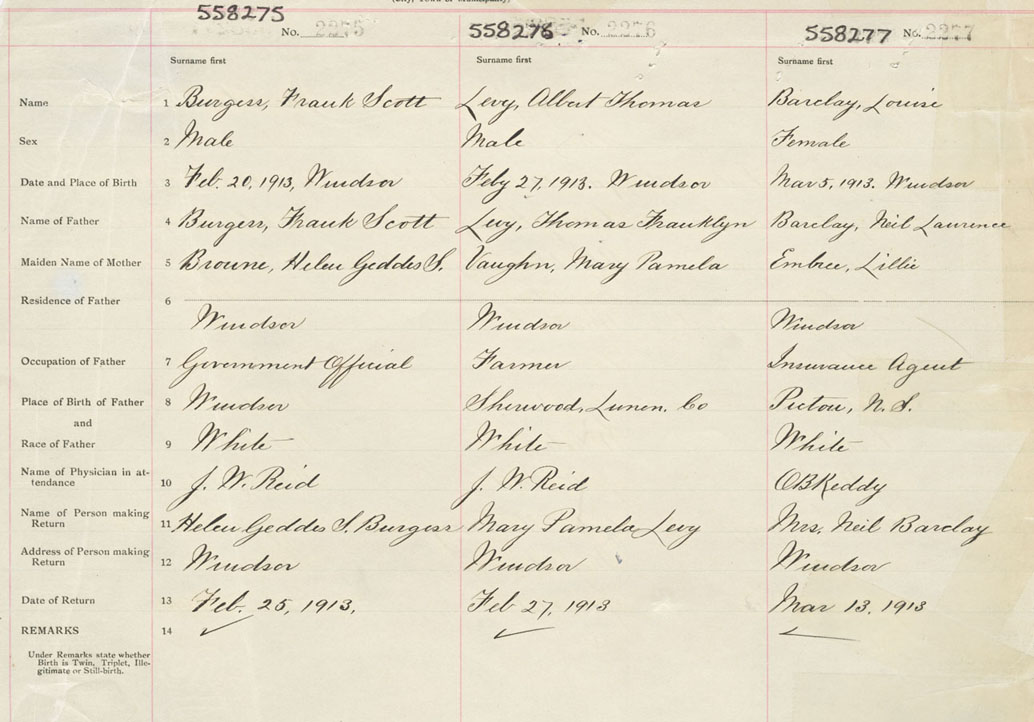 (City, Town or Municipality)
558275 558276 558277
No. 2275 No. 2276 No. 2277
Surname first Surname first Surname first
Name 1 Burgess, Frank Scott Levy, Albert Thomas Barclay, Louise
Sex 2 Male Male Female
Date and Place of Birth 3 Feb. 20, 1913, Windsor Feby 27, 1913. Windsor Mar 5, 1913. Windsor
Name of Father 4 Burgess, Frank Scott Levy, Thomas Franklyn Barclay, Neil Laurence
Maiden Name of Mother 5 Browne, Helen Geddes S. Vaughn, Mary Pamela Embree, Lillie
Residence of Father 6
Windsor Windsor Windsor
Occupation of Father 7 Government Official Farmer Insurance Agent
Place of Birth of Father 8 Windsor Sherwood, Lunen. Co Pictou, N. S.
and
Race of Father 9 White White White
Name of Physician in at-
tendance 10 J. W. Reid J. W. Reid OBKeddy
Name of Person making
Return 11 Helen Geddes S. Burgess Mary Pamela Levy Mrs. Neil Barclay
Address of Person making
Return 12 Windsor Windsor Windsor
Date of Return 13 Feb. 25, 1913, Feb 27, 1913 Mar 13, 1913
REMARKS 14
Under Remarks state whether
Birth is Twin, Triplet, Ille-
gitimate or Still-birth.